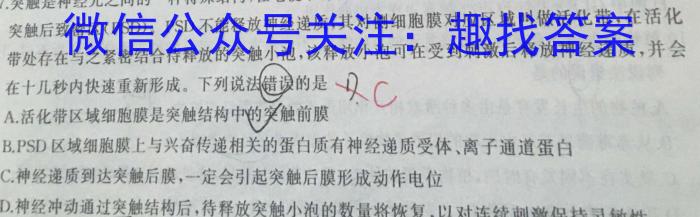 7.突触是神经元之间的一种特殊结构
突触后致密
PSD不能释放神经递质,其对侧细胞膜对应区域叫做活化带,在活化
微信公众号关注：趣找答案
带处存在与之紧密结合待释放的突触小泡,该释放小泡可在受到刺激后释放神经递质,并会
在十几秒内快速重新形成。下列说法错误的是
C
A.活化带区域细胞膜是突触结构中的突触前膜
B.PSD区域细胞膜上与兴奋传递相关的蛋白质有神经递质受体、离子通道蛋白
C.神经递质到达突触后膜,一定会引起突触后膜形成动作电位
D.神经冲动通过突触结构后,待释放突触小泡的数量将恢复,以对连续刺激保持灵敏性